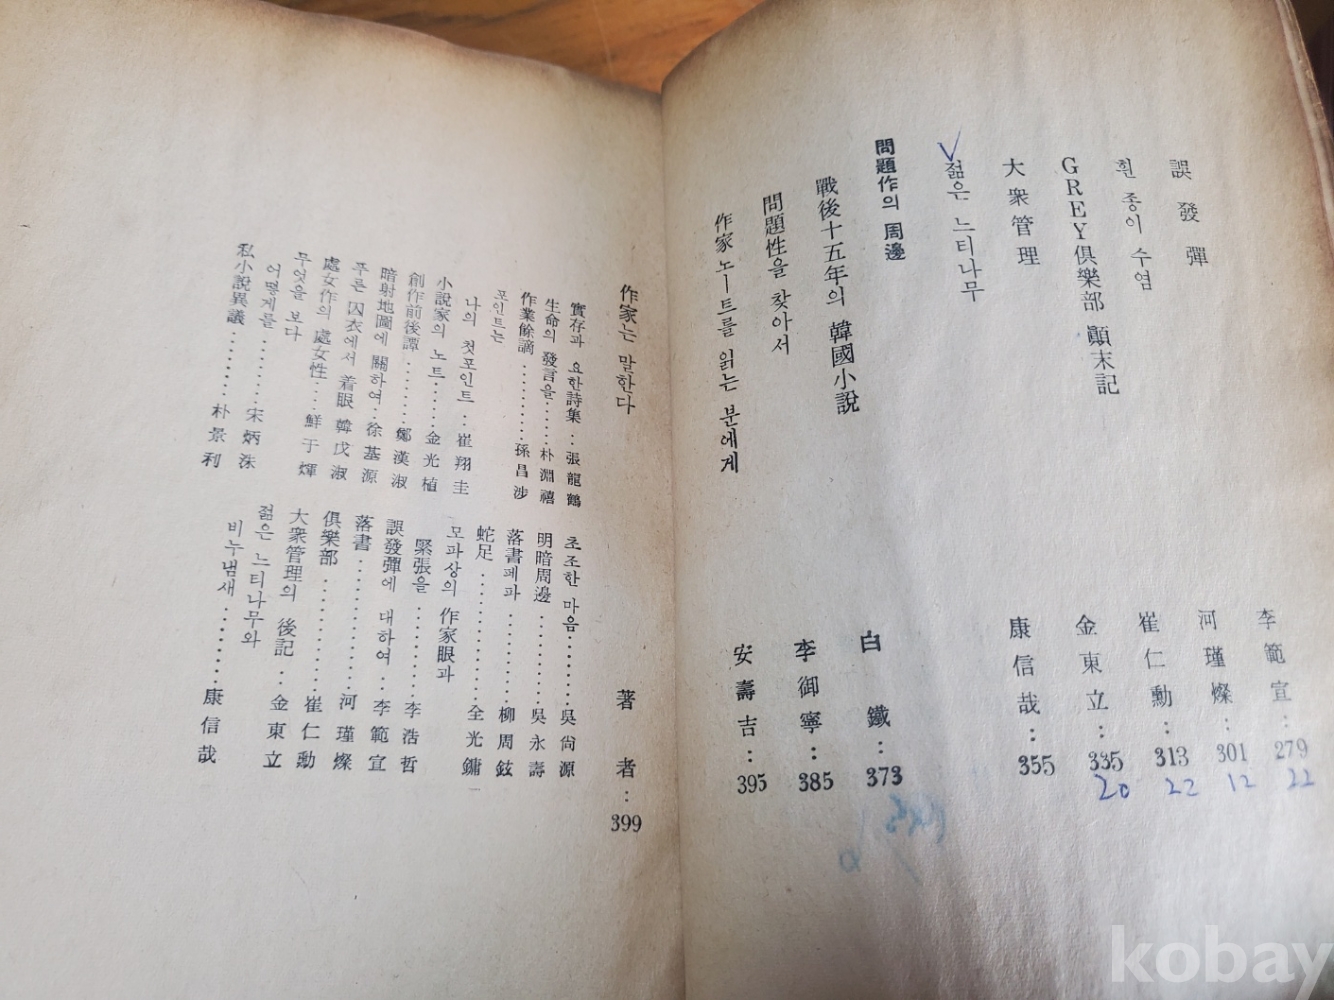 誤發彈 李範宣:279
22
흰 종이 수염 河瑾燦:301
12
GREY俱樂部 顚末記 崔仁勳:313
22
大衆管理 金東立:335
20
젊은 느티나무 康信哉:355
問題作의 周邊
戰後十五年의 韓國小說 白鐵:373
問題性을 찾아서 李御寧:385
作家노트를 읽는 분에게 安壽吉:395
作家는 말한다 著者:399
實存과 요한詩集‥張龍鶴
生命의 發言을‥‥‥朴淵禧
作業餘滴‥‥‥‥孫昌涉
포인트는
나의 첫포인트‥崔翔圭
小說家의 노트‥‥金光植
創作前後譚‥‥‥‥鄭漢淑
暗射地圖에 關하여‥徐基源
푸른 囚衣에서 着眼 韓戊淑
處女作의 處女性‥‥鮮于煇
무엇을 보다
어떻게를‥‥‥‥宋炳洙
私小說異議‥‥‥‥朴景利
초조한 마음‥‥‥‥吳尙源
明暗周邊‥‥‥‥‥吳永壽
落書페파‥‥‥‥‥柳周鉉
蛇足‥‥‥‥‥‥‥全光鏞
모파상의 作家眼과
緊張을‥‥‥‥‥李浩哲
誤發彈에 대하여‥李範宣
落書‥‥‥‥‥‥‥河瑾燦
俱樂部‥‥‥‥‥‥崔仁勳
大衆管理의 後記‥金東立
젊은 느티나무와
비누냄새‥‥‥‥康信哉
kobay